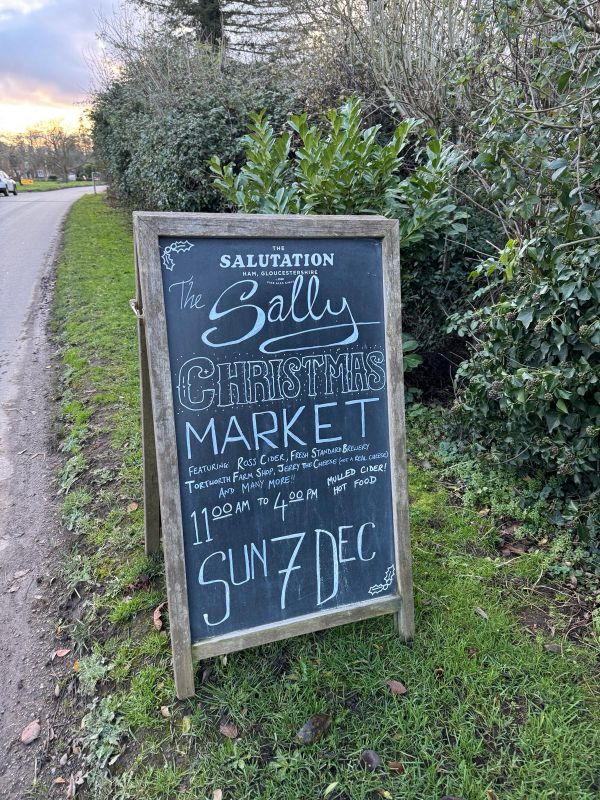 THE
SALUTATION
HAM, GLOUCESTERSHIRE
The Sally
CHRISTMAS
MARKET
FEATURING ROSS CIDER, FRESH STANDARD BREWERY
TORTWORTH FARM SHOP, JERRY THE CHEESE (NOT A REAL CHEESE)
AND MANY MORE!!
MULLED CIDER!
HOT FOOD
11 00 AM TO 4 00 PM
SUN 7 DEC